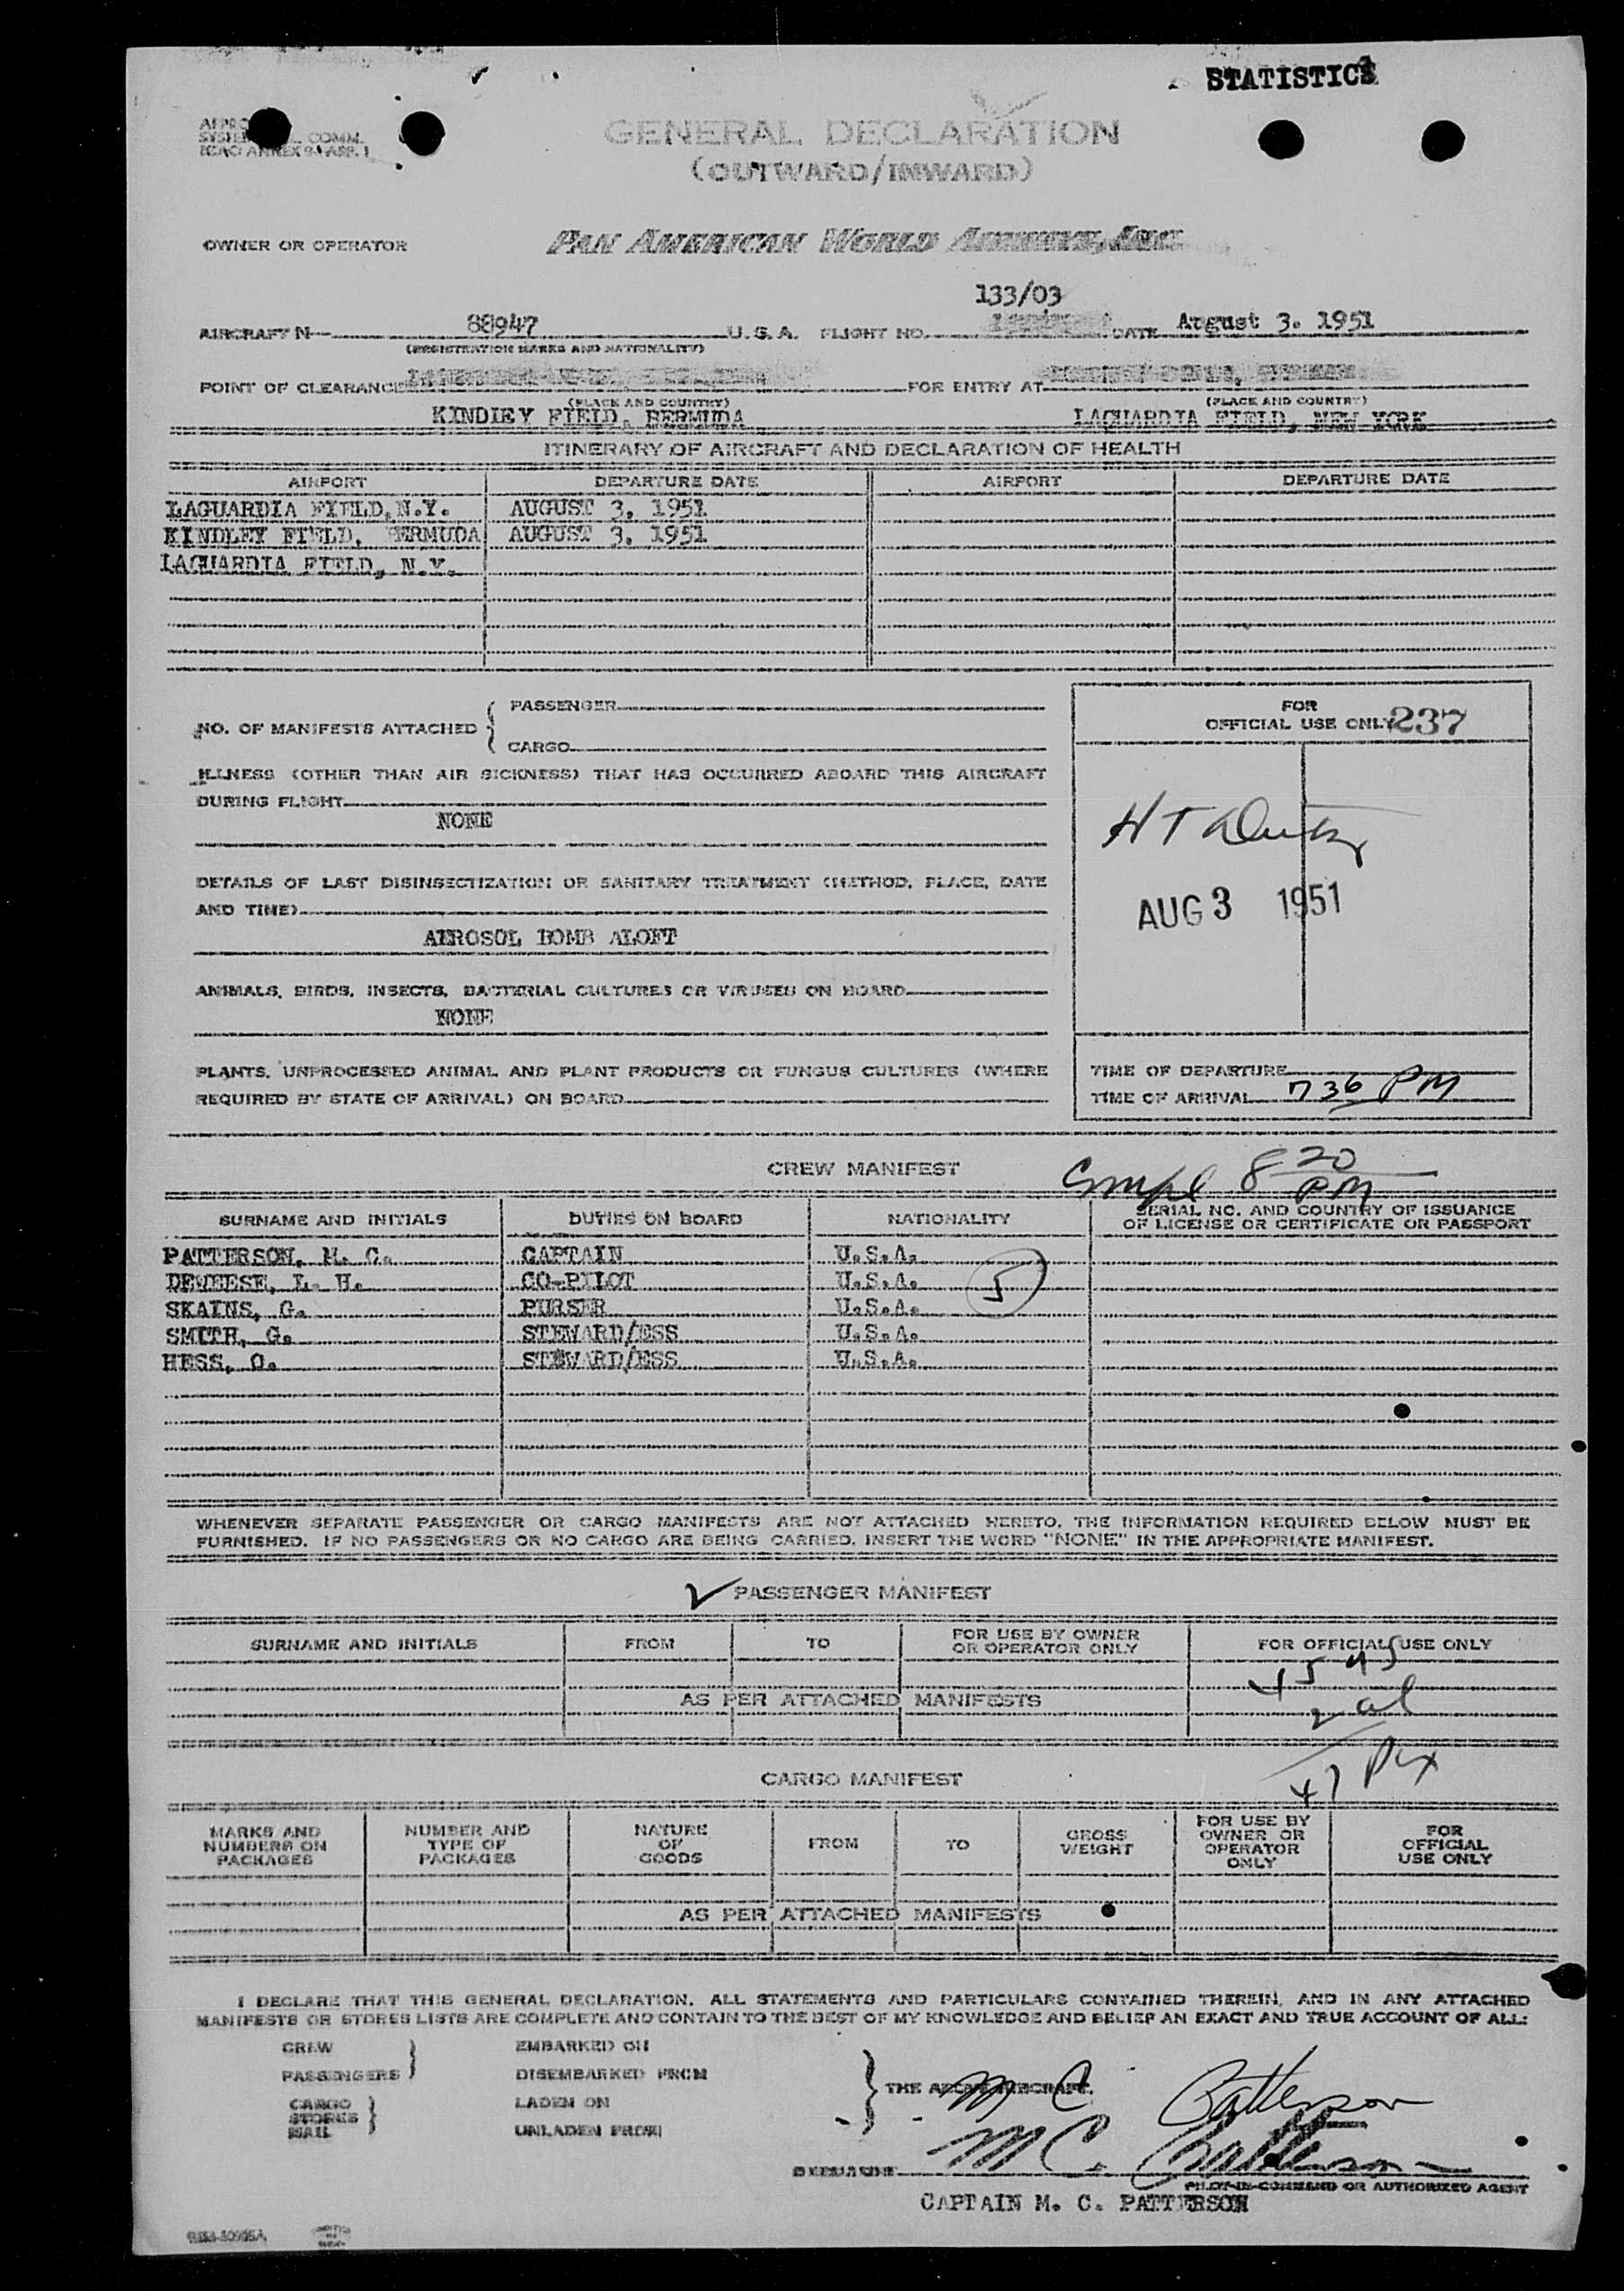 STATISTICS
GENERAL DECLARATION
(OUTWARD/INWARD)
OWNER OR OPERATOR PAN AMERICAN WORLD AIRWAYS, INC.
133/03
AIRCRAFT N 88947 U.S.A. FLIGHT NO. DATE August 3. 1951
(REGISTRATION MARKS AND NATIONALITY)
POINT OF CLEARANCE FOR ENTRY AT
(PLACE AND COUNTRY) (PLACE AND COUNTRY)
KINDLEY FIELD, BERMUDA LAGUARDIA FIELD, NEW YORK
ITINERARY OF AIRCRAFT AND DECLARATION OF HEALTH
AIRPORT DEPARTURE DATE AIRPORT DEPARTURE DATE
LAGUARDIA FIELD, N.Y. AUGUST 3, 1951
KINDLEY FIELD, BERMUDA AUGUST 3, 1951
LAGUARDIA FIELD, N.Y.
NO. OF MANIFESTS ATTACHED
PASSENGER
CARGO
FOR
OFFICIAL USE ONLY 237
ILLNESS (OTHER THAN AIR SICKNESS) THAT HAS OCCURRED ABOARD THIS AIRCRAFT
DURING FLIGHT
NONE
DETAILS OF LAST DISINSECTIZATION OR SANITARY TREATMENT (METHOD, PLACE, DATE
AND TIME)
AUG 3 1951
AEROSOL BOMB ALOFT
ANIMALS, BIRDS, INSECTS, BACTERIAL CULTURES OR VIRUSES ON BOARD
NONE
PLANTS, UNPROCESSED ANIMAL AND PLANT PRODUCTS OR FUNGUS CULTURES (WHERE
REQUIRED BY STATE OF ARRIVAL) ON BOARD
TIME OF DEPARTURE
TIME OF ARRIVAL 7 36 PM
CREW MANIFEST
8 20 PM
SURNAME AND INITIALS DUTIES ON BOARD NATIONALITY SERIAL NO. AND COUNTRY OF ISSUANCE
OF LICENSE OR CERTIFICATE OR PASSPORT
PATTERSON, M. C. CAPTAIN U.S.A.
DEWEESE, L. H. CO-PILOT U.S.A. 5
SKAINS, G. PURSER U.S.A.
SMITH, G. STEWARD/ESS U.S.A.
HESS, O. STEWARD/ESS U.S.A.
WHENEVER SEPARATE PASSENGER OR CARGO MANIFESTS ARE NOT ATTACHED HERETO, THE INFORMATION REQUIRED BELOW MUST BE
FURNISHED. IF NO PASSENGERS OR NO CARGO ARE BEING CARRIED, INSERT THE WORD "NONE" IN THE APPROPRIATE MANIFEST.
PASSENGER MANIFEST
SURNAME AND INITIALS FROM TO FOR USE BY OWNER
OR OPERATOR ONLY FOR OFFICIAL USE ONLY
45 US
AS PER ATTACHED MANIFESTS
2 al
47 Pax
CARGO MANIFEST
MARKS AND
NUMBERS ON
PACKAGES
NUMBER AND
TYPE OF
PACKAGES
NATURE
OF
GOODS
FROM
TO
GROSS
WEIGHT
FOR USE BY
OWNER OR
OPERATOR
ONLY
FOR
OFFICIAL
USE ONLY
AS PER ATTACHED MANIFESTS
I DECLARE THAT THIS GENERAL DECLARATION, ALL STATEMENTS AND PARTICULARS CONTAINED THEREIN, AND IN ANY ATTACHED
MANIFESTS OR STORES LISTS ARE COMPLETE AND CONTAIN TO THE BEST OF MY KNOWLEDGE AND BELIEF AN EXACT AND TRUE ACCOUNT OF ALL:
CREW EMBARKED ON
PASSENGERS DISEMBARKED FROM
CARGO LADEN ON
STORES
MAIL UNLADEN FROM
THE ABOVE AIRCRAFT.
M C Patterson
M C. Patterson
SIGNATURE
PILOT-IN-COMMAND OR AUTHORIZED AGENT
CAPTAIN M. C. PATTERSON